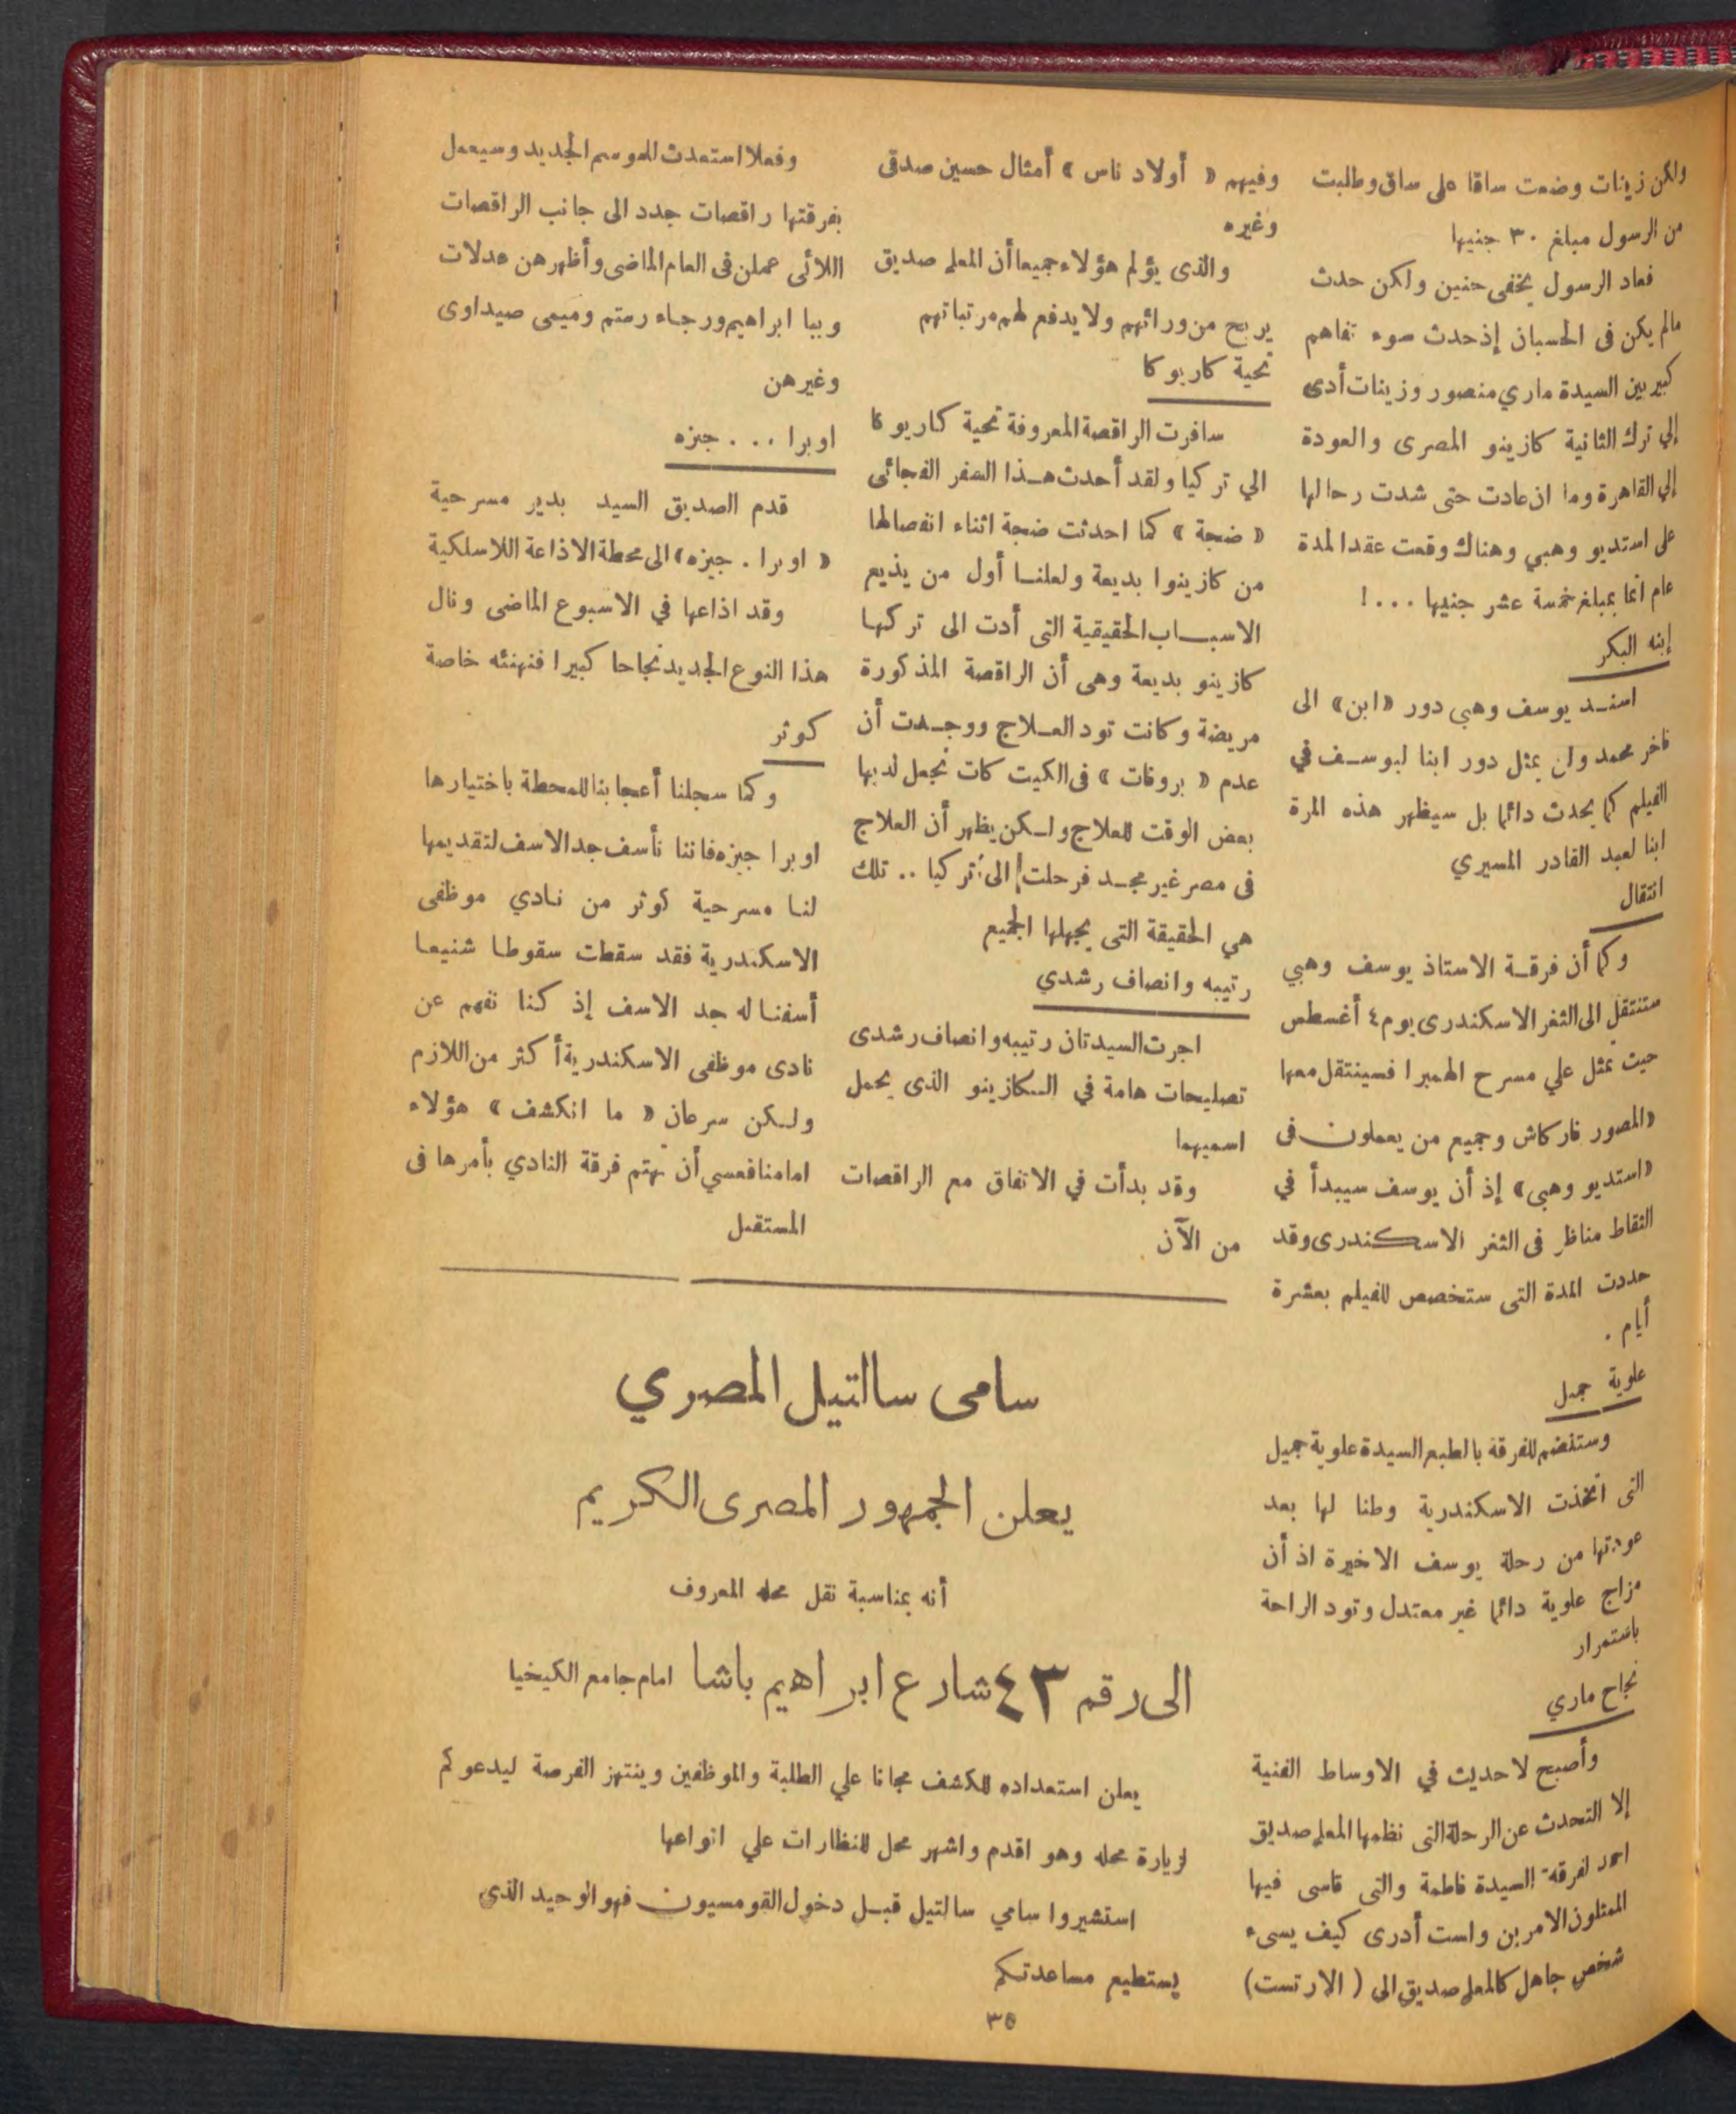 ولكن زينات وضعت ساقا على ساق وطلبت
من الرسول مبلغ ٣٠ جنيها
فعاد الرسول بخفى حنين ولكن حدث
مالم يكن فى الحسبان إذ حدث سوء تفاهم
كبير بين السيدة ماري منصور وزينات أدى
إلي ترك الثانية كازينو المصرى والعودة
إلي القاهرة وما ان عادت حتى شدت رحالها
على استديو وهبي وهناك وقعت عقدا لمدة
عام انما بمبلغ خمسة عشر جنيها . . . !
إبنه البكر
اسند يوسف وهبى دور «ابن» الى
فاخر محمد ولن يمثل دور ابنا ليوسف في
الفيلم كما يحدث دائما بل سيظهر هذه المرة
ابنا لعبد القادر المسيري
انتقال
وكما أن فرقة الاستاذ يوسف وهبي
ستنتقل الى الثغر الاسكندرى يوم ٤ أغسطس
حيث تمثل علي مسرح الهمبرا فسينتقل معها
«المصور فاركاش وجميع من يعملون فى
«استديو وهبى» إذ أن يوسف سيبدأ في
التقاط مناظر فى الثغر الاسكندرى وقد
حددت المدة التى ستخصص للفيلم بعشرة
أيام .
علوية جميل
وستنضم للفرقة بالطبع السيدة علوية جميل
التى اتخذت الاسكندرية وطنا لها بعد
عودتها من رحلة يوسف الاخيرة اذ أن
مزاج علوية دائما غير معتدل وتود الراحة
باستمرار
نجاح ماري
وأصبح لا حديث في الاوساط الفنية
إلا التحدث عن الرحلة التى نظمها المعلم صديق
احمد لفرقة السيدة فاطمة والتى قاسى فيها
الممثلون الامرين ولست أدرى كيف يسىء
شخص جاهل كالمعلم صديق الى ( الارتست)
وفيهم « أولاد ناس » أمثال حسين صدقى
وغيره
والذى يؤلم هؤلاء جميعا أن المعلم صديق
يربح من ورائهم ولا يدفع لهم مرتباتهم
تحية كاريوكا
سافرت الراقصة المعروفة تحية كاريوكا
الي تركيا ولقد أحدث هذا السفر الفجائى
« ضجة » كما احدثت ضجة اثناء انفصالها
من كازينوا بديعة ولعلنا أول من يذيع
الاسباب الحقيقية التى أدت الى تركها
كازينو بديعة وهى أن الراقصة المذكورة
مريضة وكانت تود العلاج ووجدت أن
عدم « بروفات » فى الكيت كات تجعل لديها
بعض الوقت للعلاج ولكن يظهر أن العلاج
فى مصر غير مجد فرحلت الى تركيا .. تلك
هي الحقيقة التى يجهلها الجميع
رتيبه وانصاف رشدي
اجرت السيدتان رتيبه وانصاف رشدى
تصليحات هامة في الكازينو الذى يحمل
اسميهما
وقد بدأت في الاتفاق مع الراقصات
من الآن
وفعلا استعدث للموسم الجديد وسيعمل
بفرقتها راقصات جدد الى جانب الراقصات
اللائى عملن فى العام الماضى وأظهرهن عدلات
وببا ابراهيم ورجاء رستم وميمى صيداوى
وغيرهن
اوبرا . . . جيزه
قدم الصديق السيد بدير مسرحية
« اوبرا . جيزه» الى محطة الاذاعة اللاسلكية
وقد اذاعها في الاسبوع الماضى ونال
هذا النوع الجديد نجاحا كبيرا فنهنئه خاصة
كوثر
وكما سجلنا أعجابنا للمحطة باختيارها
اوبرا جيزه فاننا نأسف جد الاسف لتقديمها
لنا مسرحية كوثر من نادي موظفى
الاسكندرية فقد سقطت سقوطا شنيعا
أسفنا له جد الاسف إذ كنا نفهم عن
نادى موظفى الاسكندرية أكثر من اللازم
ولكن سرعان « ما انكشف » هؤلاء
امامنا فعسي أن تهتم فرقة النادي بأمرها فى
المستقبل
سامى سالتيل المصري
يعلن الجمهور المصرى الكريم
أنه بمناسبة نقل محله المعروف
الى رقم ٤٣ شارع ابراهيم باشا امام جامع الكيخيا
يعلن استعداده للكشف مجانا علي الطلبة والموظفين وينتهز الفرصة ليدعوكم
لزيارة محله وهو اقدم واشهر محل للنظارات علي انواعها
استشيروا سامي سالتيل قبل دخول القومسيون فهو الوحيد الذي
يستطيع مساعدتكم
٣٥